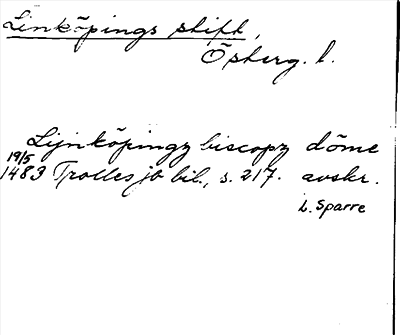 Linköpings stift,
Östberg. l.
Lijnköpingz biscopz döme
19/5
1483 Trolles jb bil., s. 217. avskr.
L. Sparre